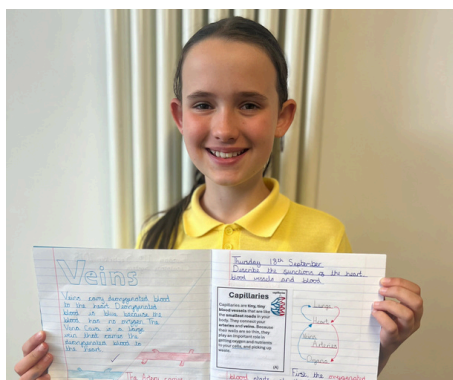 Veins
Veins carry deoxygenated blood
to the heart. Deoxygenated
blood is blue because the
blood has no oxygen. The
Vena Cava is a large
vein that carries the
deoxygenated blood to
the heart.
Thursday 18th September
Describe the functions of the heart,
blood vessels and blood.
Capillaries
Capillaries are tiny, tiny
blood vessels that are like
the smallest roads in your
body. They connect your
arteries and veins. Because
their walls are so thin, they
play an important role in
getting oxygen and nutrients
to your cells, and picking up
waste.
Lungs
Heart
Veins
Arteries
Organs
First the oxygenated